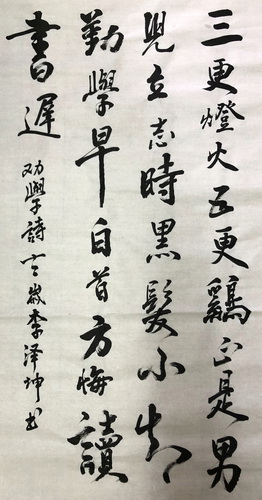 三更燈火五更鷄正是男
兒立志時黑髮不知
勤學早白首方悔讀
書遲 劝學詩 歲李泽坤书